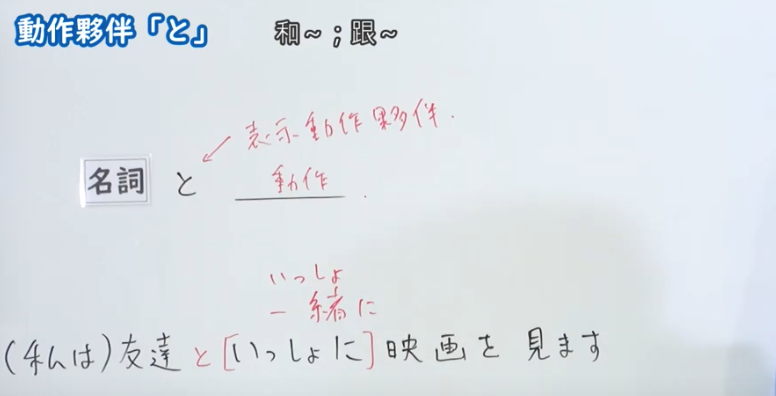 動作夥伴「と」 和～；跟～
表示動作夥伴.
名詞 と 動作.
いっしょ
一緒に
(私は)友達と[いっしょに]映画を見ます